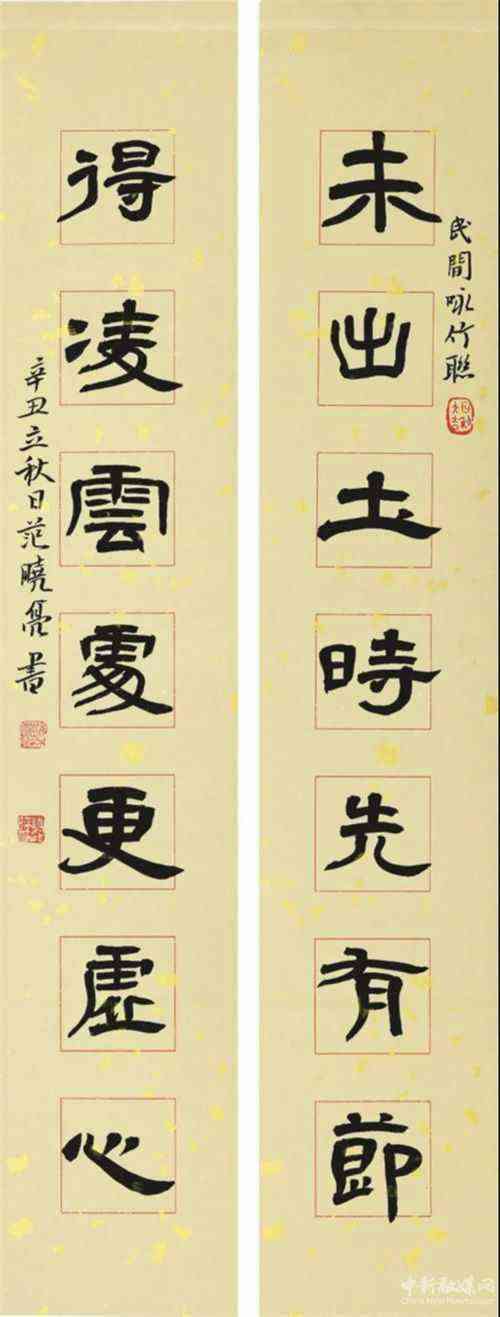 民間咏竹聯
未出土時先有節
得凌雲處更虛心
辛丑立秋日范曉亮書
中新融媒网